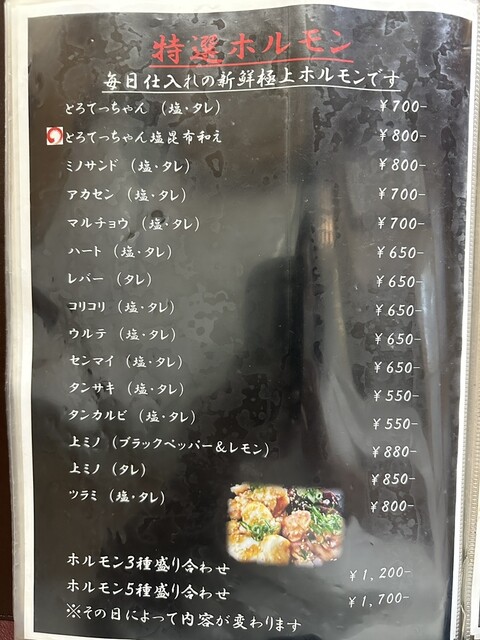 特選ホルモン
毎日仕入れの新鮮極上ホルモンです
とろてっちゃん (塩・タレ) ¥700-
とろてっちゃん塩昆布和え ¥800-
ミノサンド (塩・タレ) ¥800-
アカセン (塩・タレ) ¥700-
マルチョウ (塩・タレ) ¥700-
ハート (塩・タレ) ¥650-
レバー (タレ) ¥650-
コリコリ (塩・タレ) ¥650-
ウルテ (塩・タレ) ¥650-
センマイ (塩・タレ) ¥650-
タンサキ (塩・タレ) ¥550-
タンカルビ (塩・タレ) ¥550-
上ミノ (ブラックペッパー&レモン) ¥880-
上ミノ (タレ) ¥850-
ツラミ (塩・タレ) ¥800-
ホルモン3種盛り合わせ ¥1,200-
ホルモン5種盛り合わせ ¥1,700-
※その日によって内容が変わります